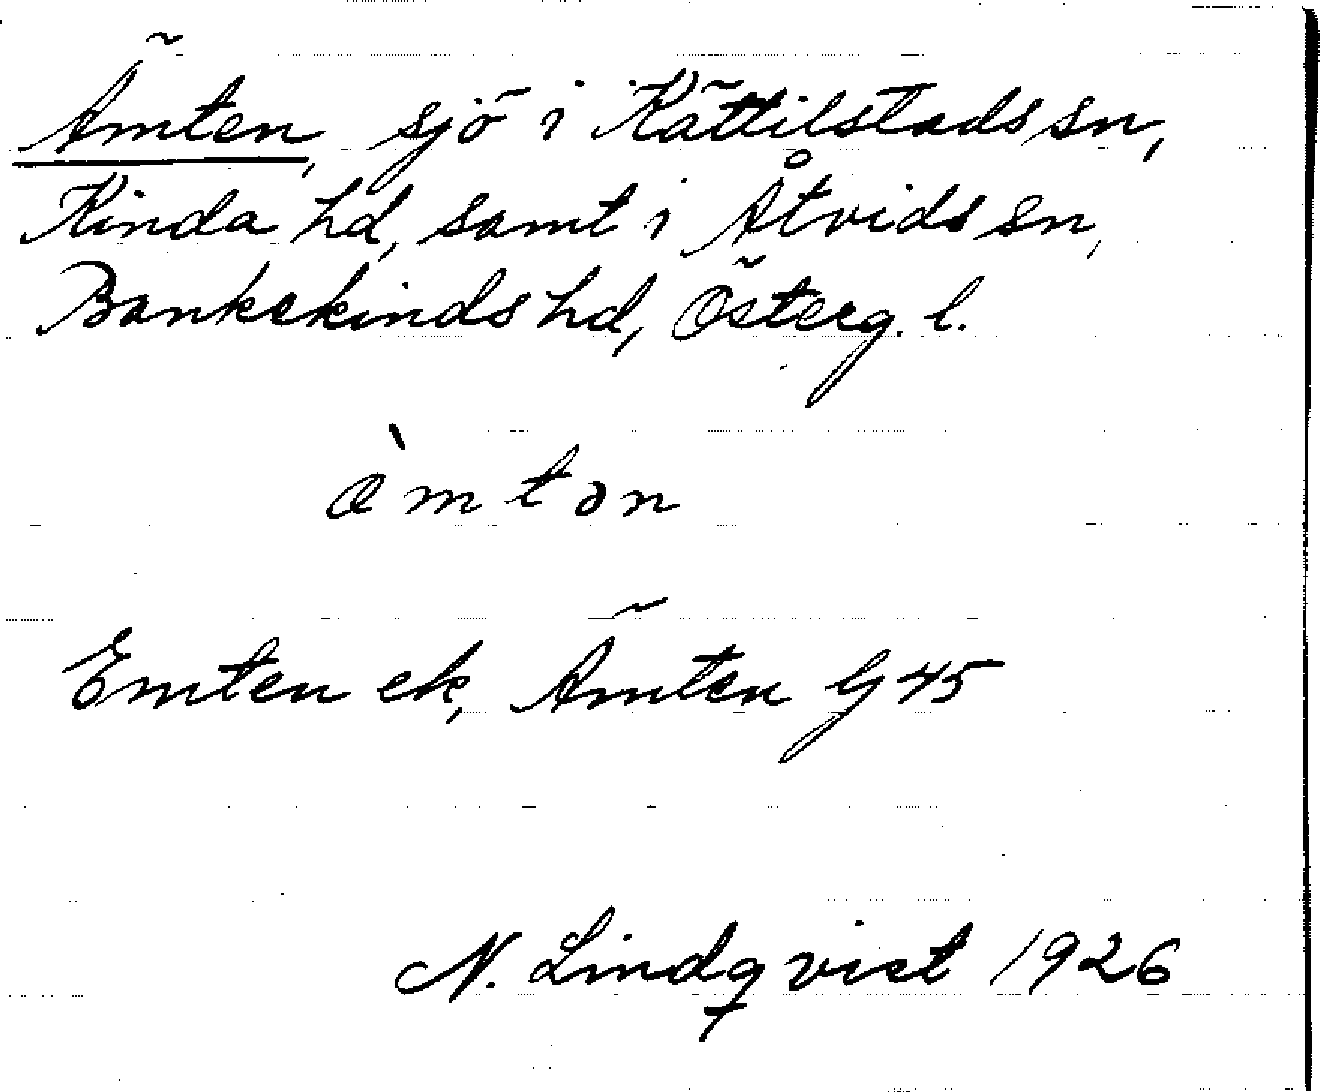 Ämten, sjö i Kättilstads sn,
Kinda hd, samt i Åtvids sn,
Bankekinds hd, Österg. l.
æ̀mtən
Emten ek, Ämten G 45
N. Lindqvist 1926